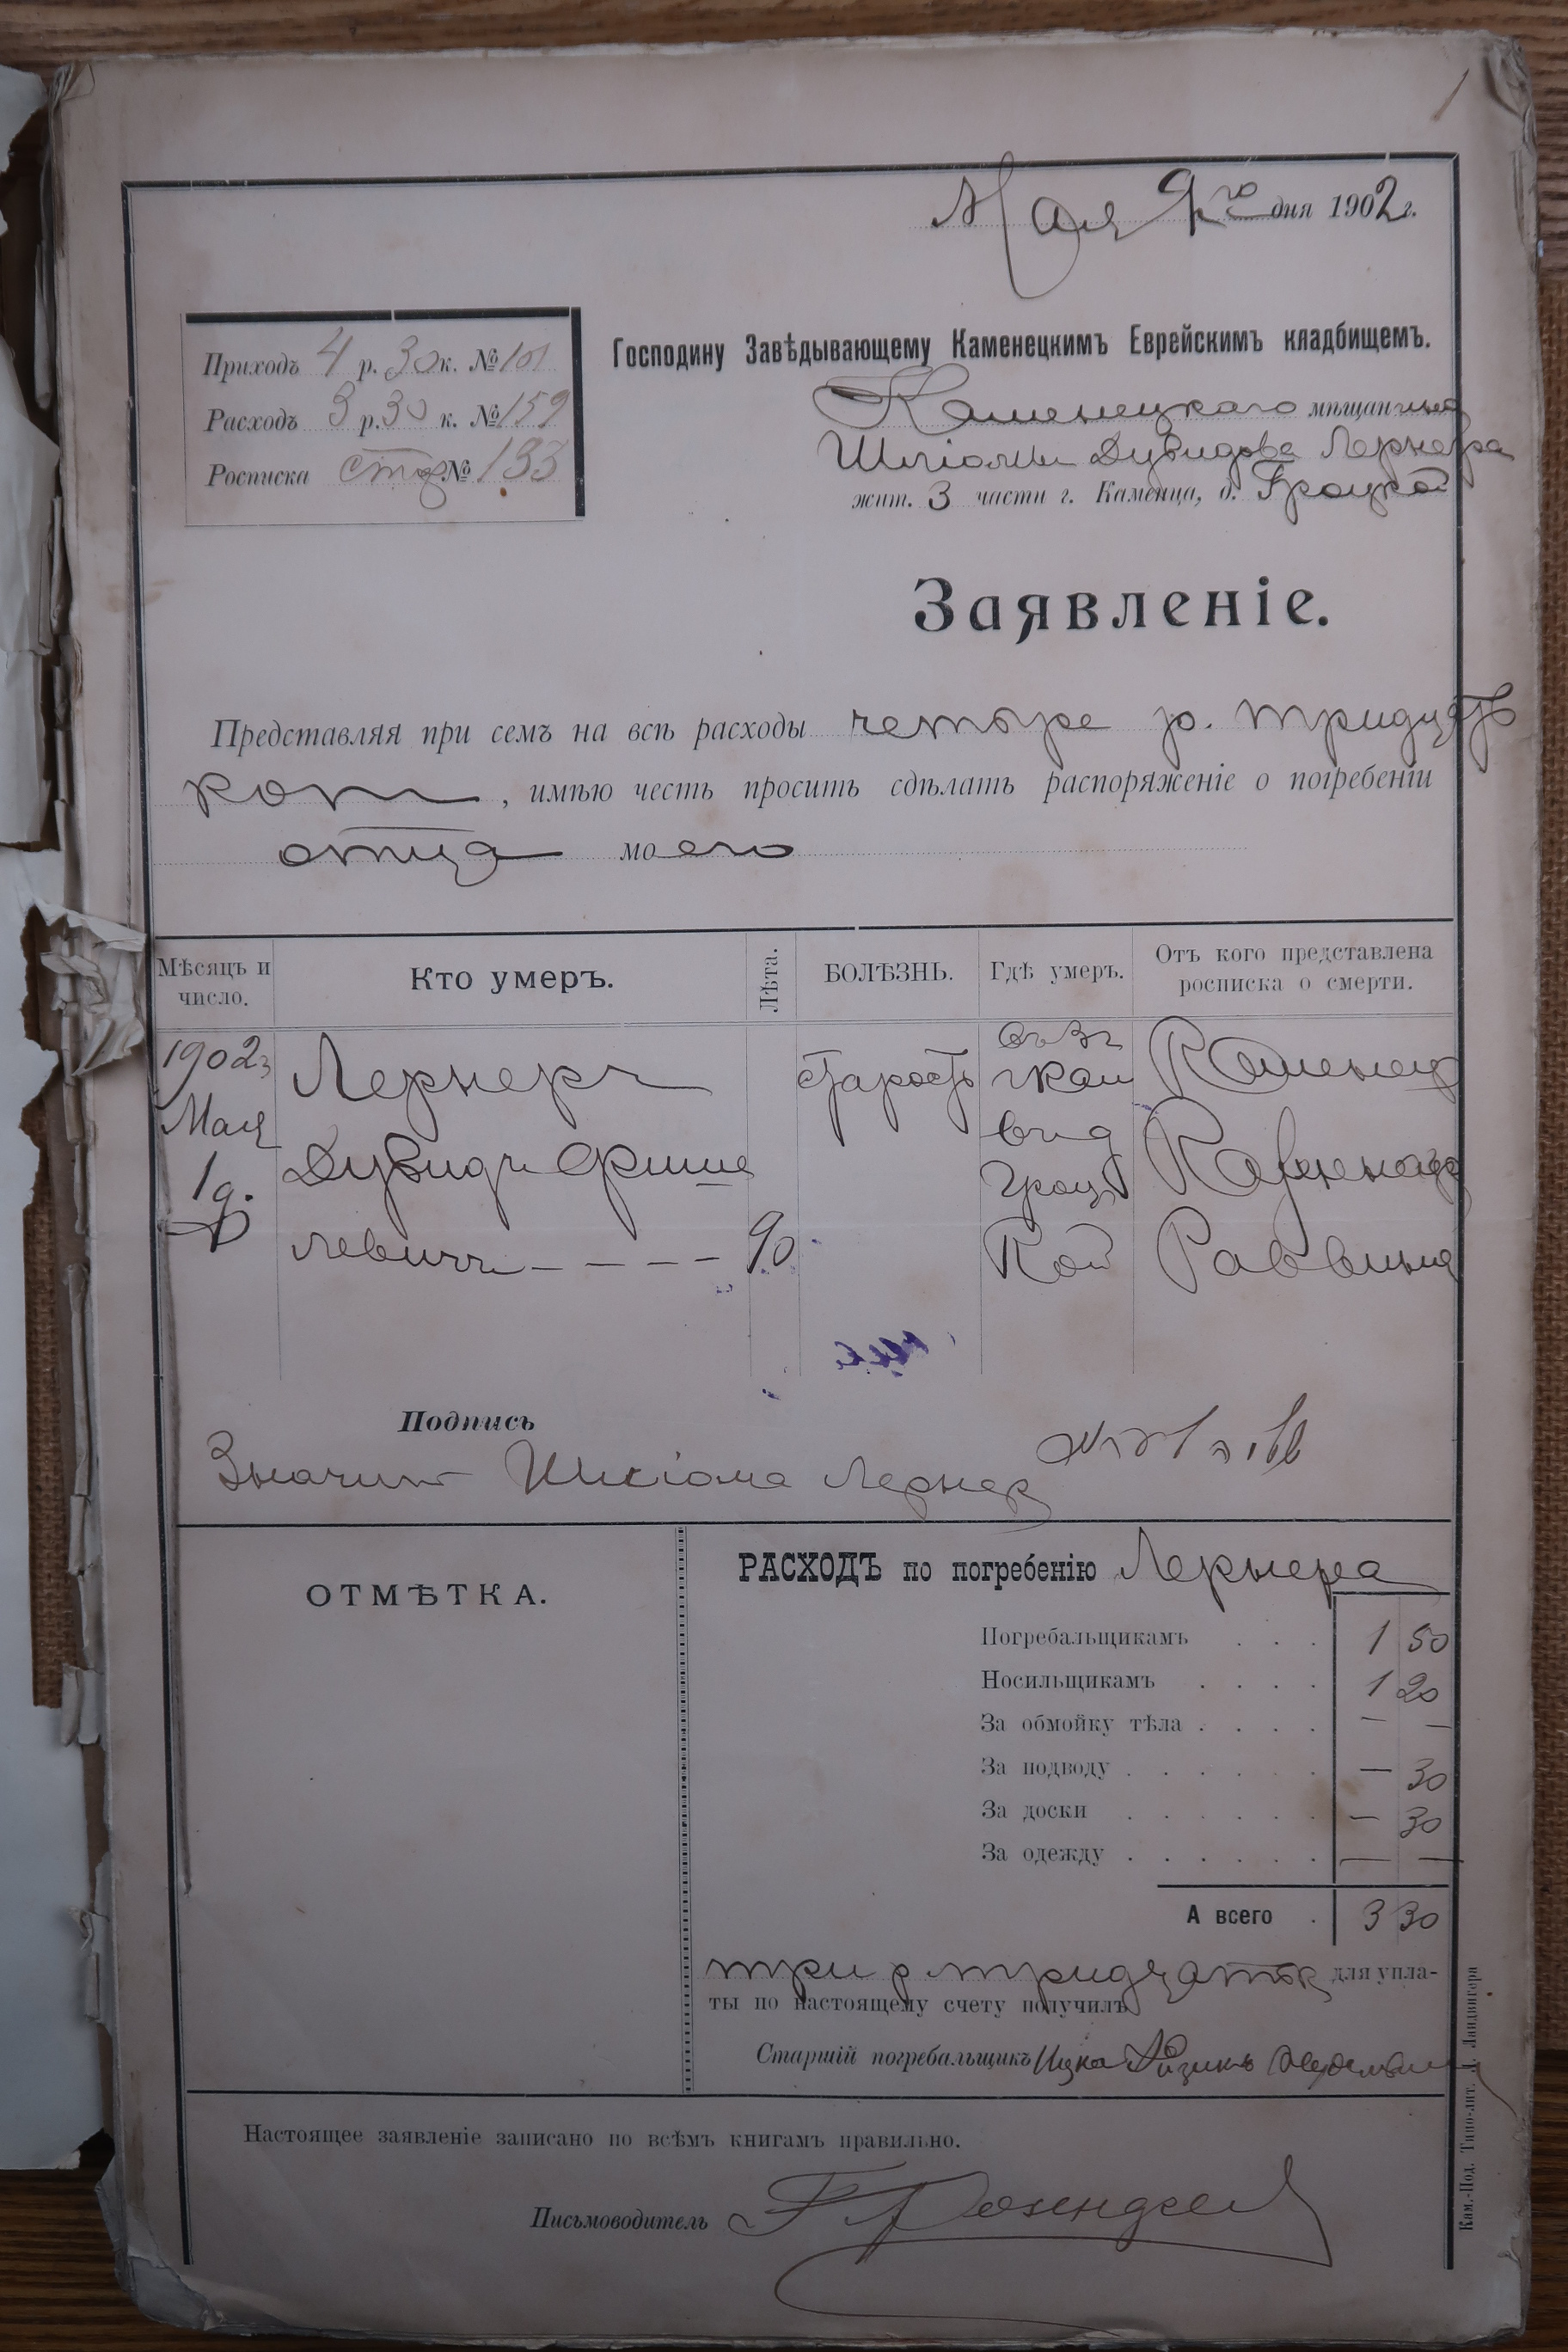 1
Мая 9го дня 1902 г.
Приходъ 4 р. 30 к. № 101
Расходъ 3 р. 30 к. № 159
Росписка № 133
Господину Завѣдывающему Каменецкимъ Еврейскимъ кладбищемъ.
Каменецкаго мѣщанина
Шліомы Дувидова Лернера
жит. 3 части г. Каменца, д. Гроцкой
Заявленіе.
Представляя при семъ на всѣ расходы четыре р. тридцать
коп , имѣю честь просить сдѣлать распоряженіе о погребеніи
отца моего
Мѣсяцъ и число.
Кто умеръ.
Лѣта.
БОЛѢЗНЬ.
Гдѣ умеръ.
Отъ кого представлена росписка о смерти.
1902 г
Мая
Лернеръ
Дувидъ Фише
левичъ - - - -
90
старость
въ 3 ч
г Кам
в д
Гроц
кой
Каменец
Казеннаго
Раввина
Подпись
Значит Шліома Лернер
РАСХОДЪ по погребенію Лернера
ОТМѢТКА.
Погребальщикамъ . . . 1 50
Носильщикамъ . . . . 1 20
За обмойку тѣла . . . . — —
За подводу . . . . . . — 30
За доски . . . . . . — 30
За одежду . . . . . . — —
А всего . 3 30
три р тридцать к для упла-
ты по настоящему счету получилъ
Старшій погребальщикъ Ицко Айзикъ
Настоящее заявленіе записано по всѣмъ книгамъ правильно.
Письмоводитель
Кам.-Под. Типо-лит. Л. Ландвигера